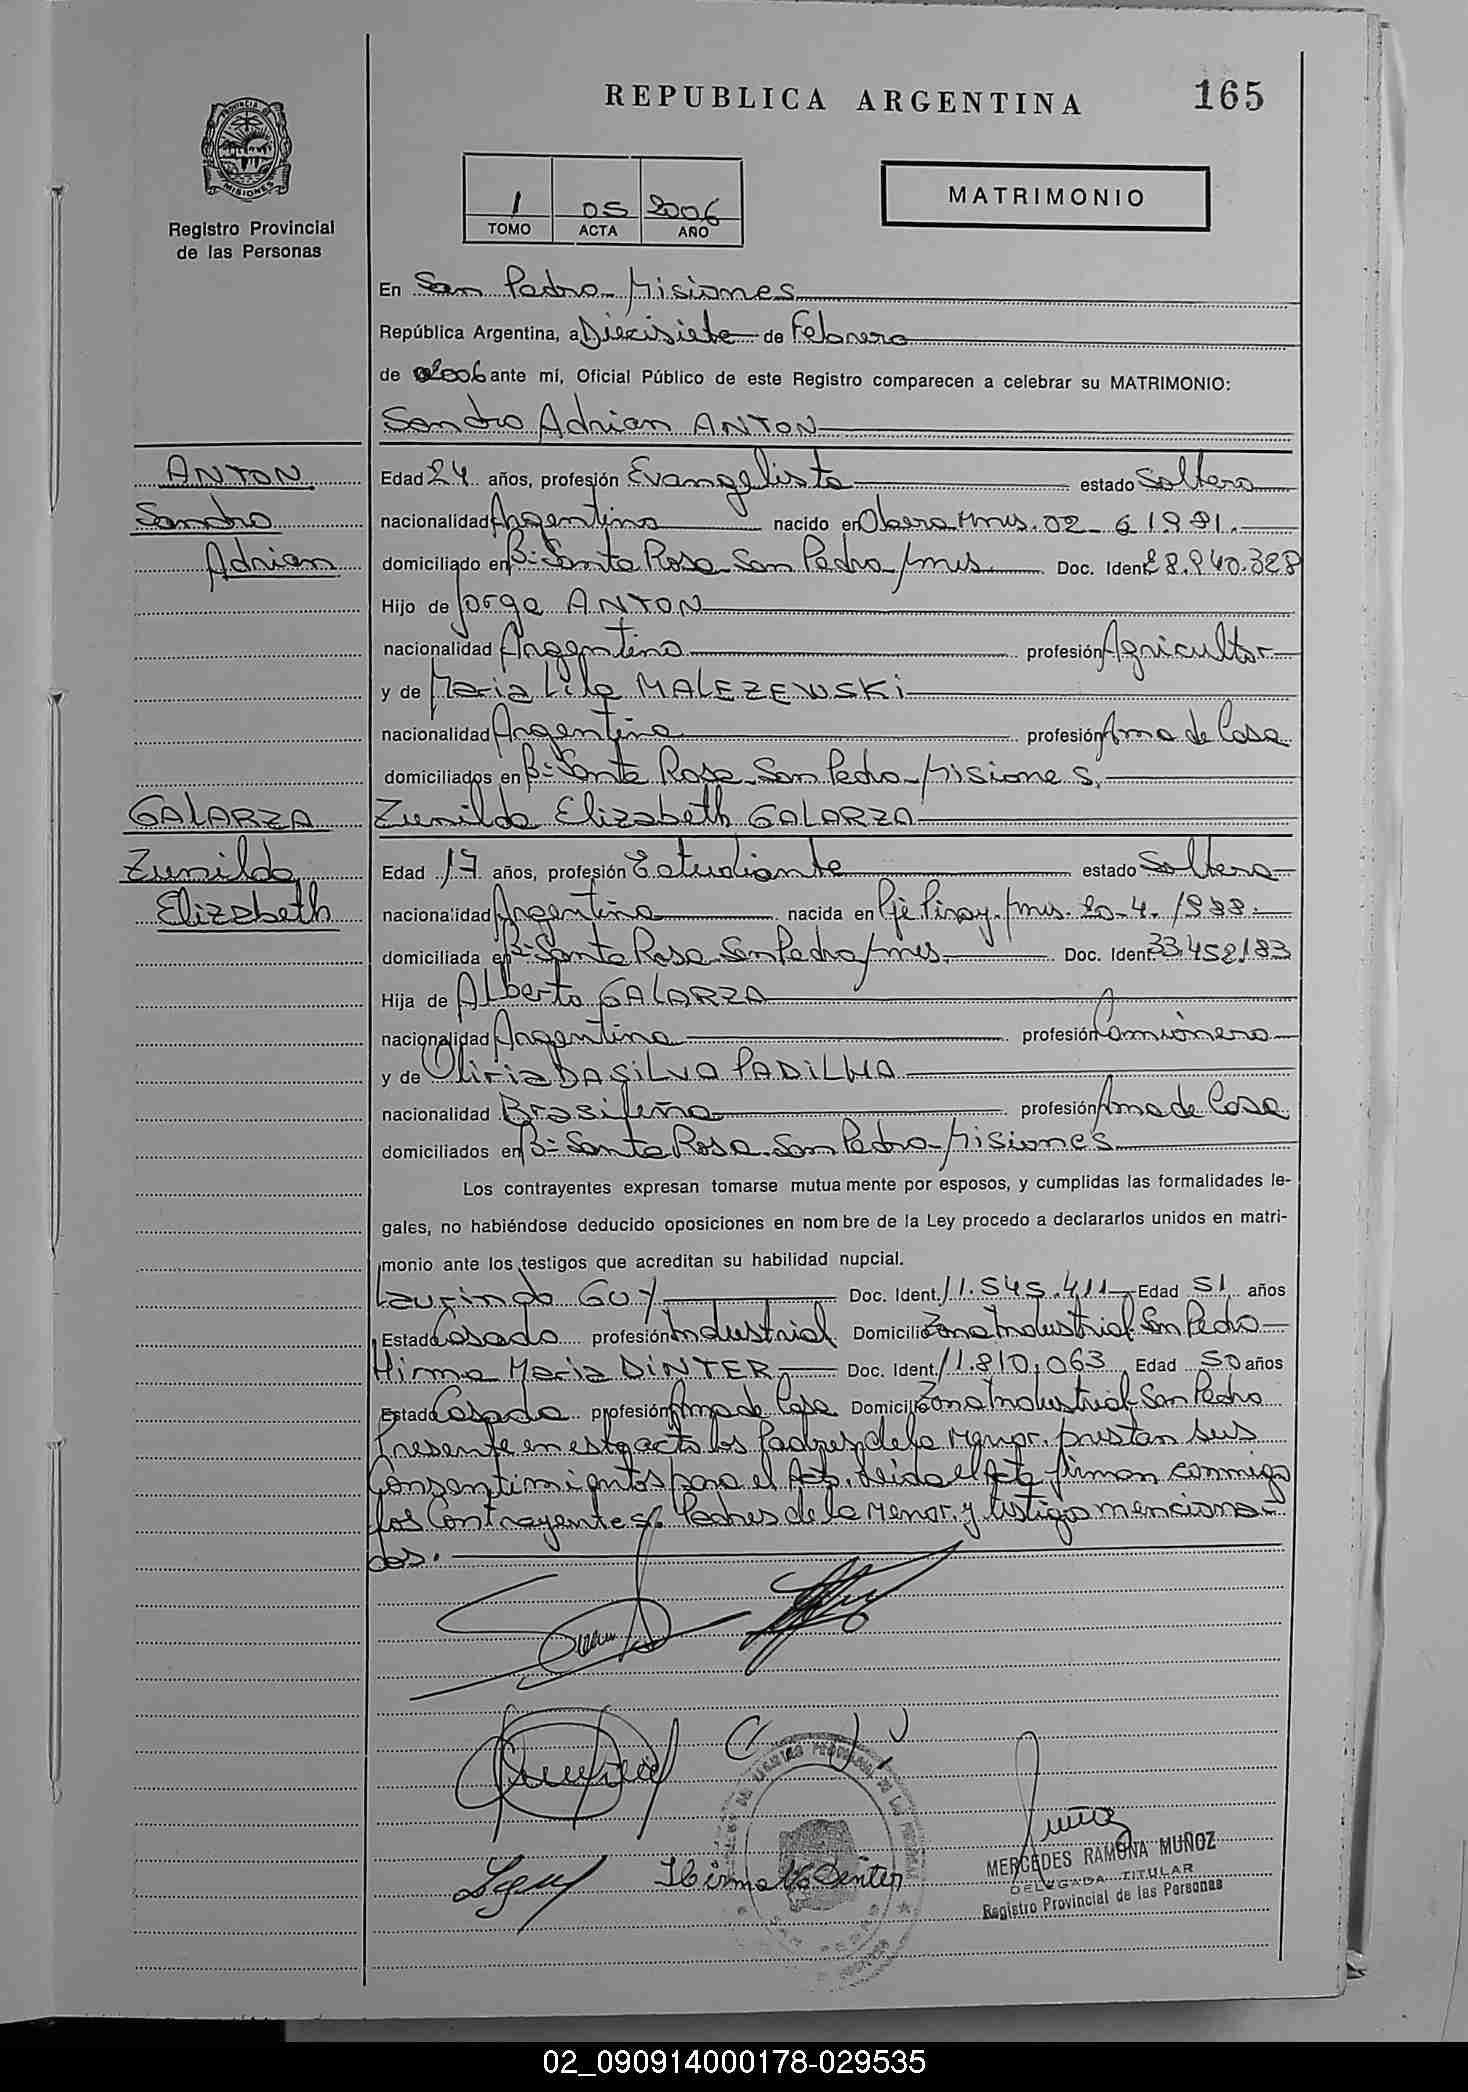 REPUBLICA ARGENTINA
165
PROVINCIA DE MISIONES
Registro Provincial
de las Personas
1 05 2006
TOMO ACTA AÑO
MATRIMONIO
En San Pedro - Misiones
República Argentina, a Diecisiete de Febrero
de 2006 ante mí, Oficial Público de este Registro comparecen a celebrar su MATRIMONIO:
Sandro Adrian ANTON
ANTON
Sandro
Adrian
Edad 24 años, profesión Evangelista estado Soltero
nacionalidad Argentino nacido en Obera Mnes. 02-6-1981.
domiciliado en Bº Santa Rosa San Pedro Mnes. Doc. Ident. 28.940.328
Hijo de Jorge ANTON
nacionalidad Argentino profesión Agricultor
y de Maria Lila MALEZEWSKi
nacionalidad Argentina profesión Ama de Casa
domiciliados en Bº Santa Rosa San Pedro - Misiones.
GALARZA
Zunilda
Elizabeth
Zunilda Elizabeth GALARZA
Edad 17 años, profesión Estudiante estado Soltera
nacionalidad Argentina nacida en Pje Piray. Mnes. 20-4-1988.
domiciliada en Bº Santa Rosa San Pedro Mnes. Doc. Ident. 33.452.183
Hija de Alberto GALARZA
nacionalidad Argentina profesión Camionero
y de Oliria DA SILVA PADILHA
nacionalidad Brasileña profesión Ama de Casa
domiciliados en Bº Santa Rosa San Pedro - Misiones
Los contrayentes expresan tomarse mutua mente por esposos, y cumplidas las formalidades le-
gales, no habiéndose deducido oposiciones en nom bre de la Ley procedo a declararlos unidos en matri-
monio ante los testigos que acreditan su habilidad nupcial.
Laurindo GUY Doc. Ident. 11.545.411 Edad 51 años
Estado Casado profesión Industrial Domicilio Zona Industrial San Pedro
Hirma Maria DiNTER Doc. Ident. 11.810.063 Edad 50 años
Estado Casada profesión Ama de Casa Domicilio Zona Industrial San Pedro
Presente en este acto los Padres de la Menor. prestan sus
Consentimientos para el Acto. Leida el Acta firman conmigo
los Contrayentes. Padres de la Menor. y testigos menciona-
dos.
Hirma M Dinter
MERCEDES RAMONA MUÑOZ
DELEGADA TITULAR
Registro Provincial de las Personas
02_090914000178-029535